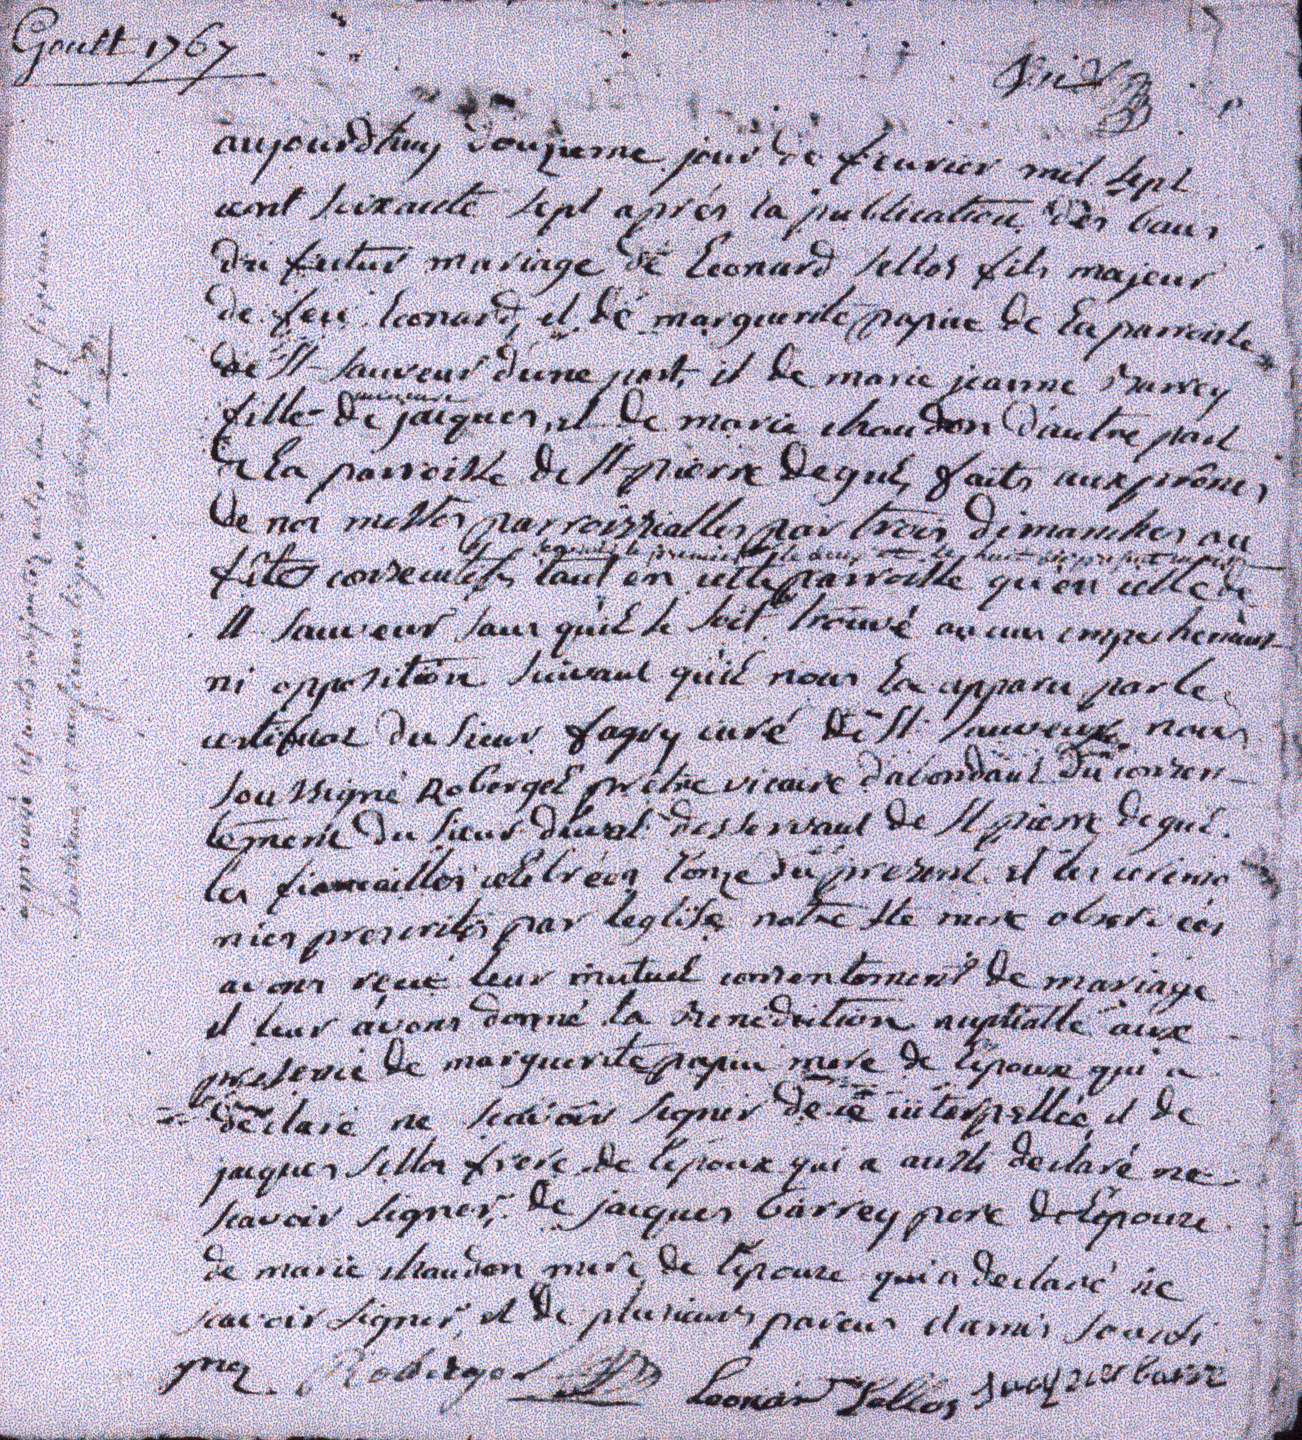 Goutt 1767
aujourdhuy douzieme jour de fevrier mil sept
cent soixante sept aprés la publication des bans
du futur mariage de Leonard sellos fils majeur
de feu Leonard, et de marguerite papin de la parroisse
de St sauveur d'une part, et de marie jeanne Barrey
fille mineure de jacques, et de marie chaudon d'autre part
de la parroisse de St pierre degueul, faits aux prônes
de nos messes parroissialles par trois dimanches ou
fêtes consecutifs tant en cette parroisse qu'en celle de
St sauveur sans qu'il se soit trouvé aucuns empechement
ni opposition suivant qu'il nous la apparu par le
certificat du sieur fagry curé de St sauveur, nous
soussigné Robergel prêtre vicaire d'abondant du consen-
tement du sieur desservant de St pierre de
les fiancailles celebrées l'onze du present et les ceremo
nies prescrites par leglise notre ste mere observées
avons reçu leur mutuel consentement de mariage
et leur avons donné la Benediction nuptialle aux
presence de marguerite papin mere de l'epoux qui a
declaré ne scavoir signer de ce interpellée, et de
jaques sellos frere de l'epoux qui a aussi declaré ne
scavoir signer, de jacques barrey pere de l'epouze
de marie chaudon mere de l'epouze qui a declaré ne
scavoir signer, et de plusieurs parens et amis soussi
gnez Robergel Leonard Sellos Jacques barre